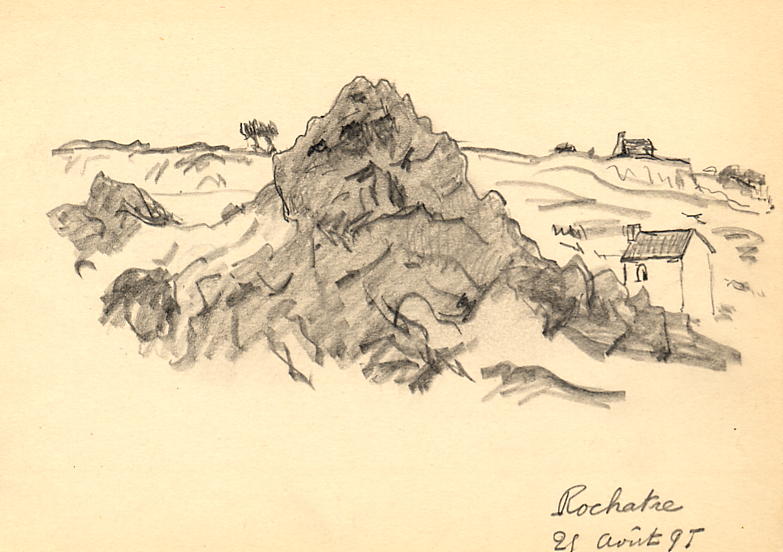 Rochatre
25 Août 95